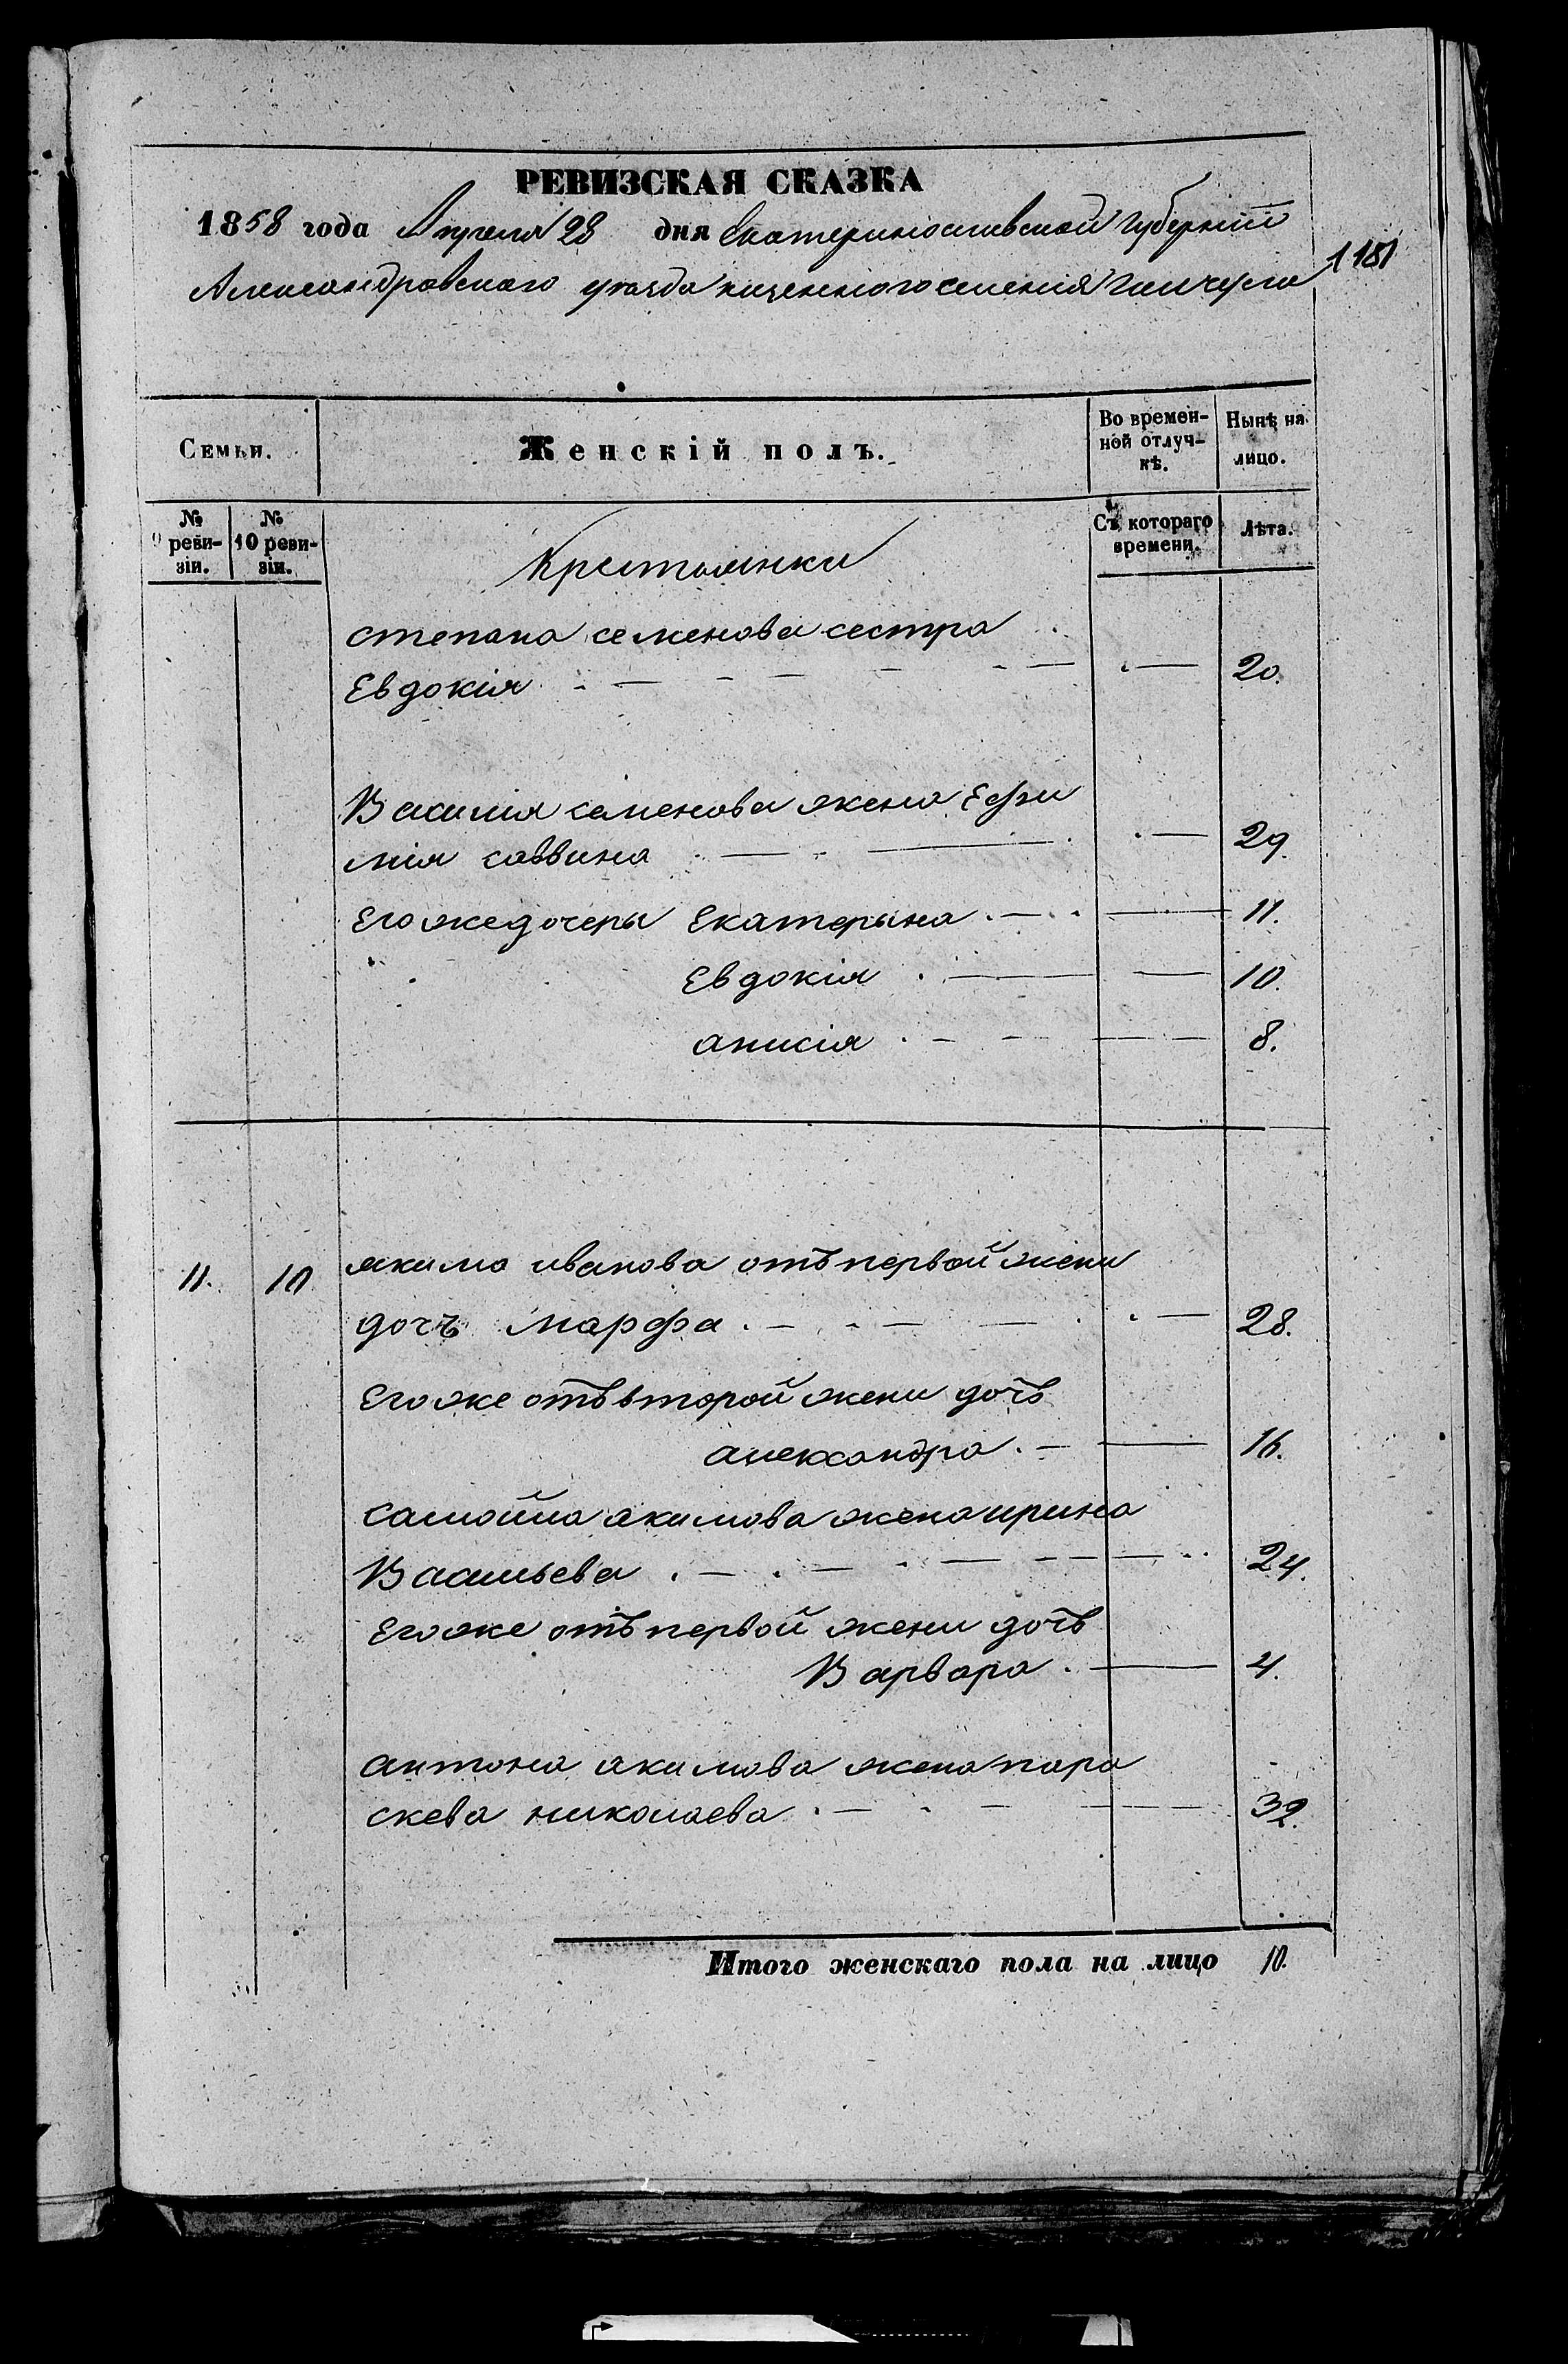 РЕВИЗСКАЯ СКАЗКА
1858 года Апреля 28 дня Екатеринославской губерніи
Александровскаго уезда казенного селенія Гайчула
1181
Семьи.
Женскій полъ.
Во временной отлучкѣ.
Нынѣ на лицо.
№ 9 ревизіи.
№ 10 ревизіи.
Съ котораго времени.
Лѣта.
Крестьянки
степана семенова сестра
Евдокія 20.
Василія семенова жена Ефи
мія саввина 29.
Его же дочеры Екатерына 11.
Евдокія 10.
анисія 8.
11. 10 якима иванова отъ первой жени
дочъ марфа 28.
Его же отъ второй жени дочъ
александра 16.
самойла акимова жена ирина
Васильева 24.
Его же отъ первой жени дочъ
Варвара 4.
антона акимова жена пара
скева николаева 32.
Итого женскаго пола на лицо 10.